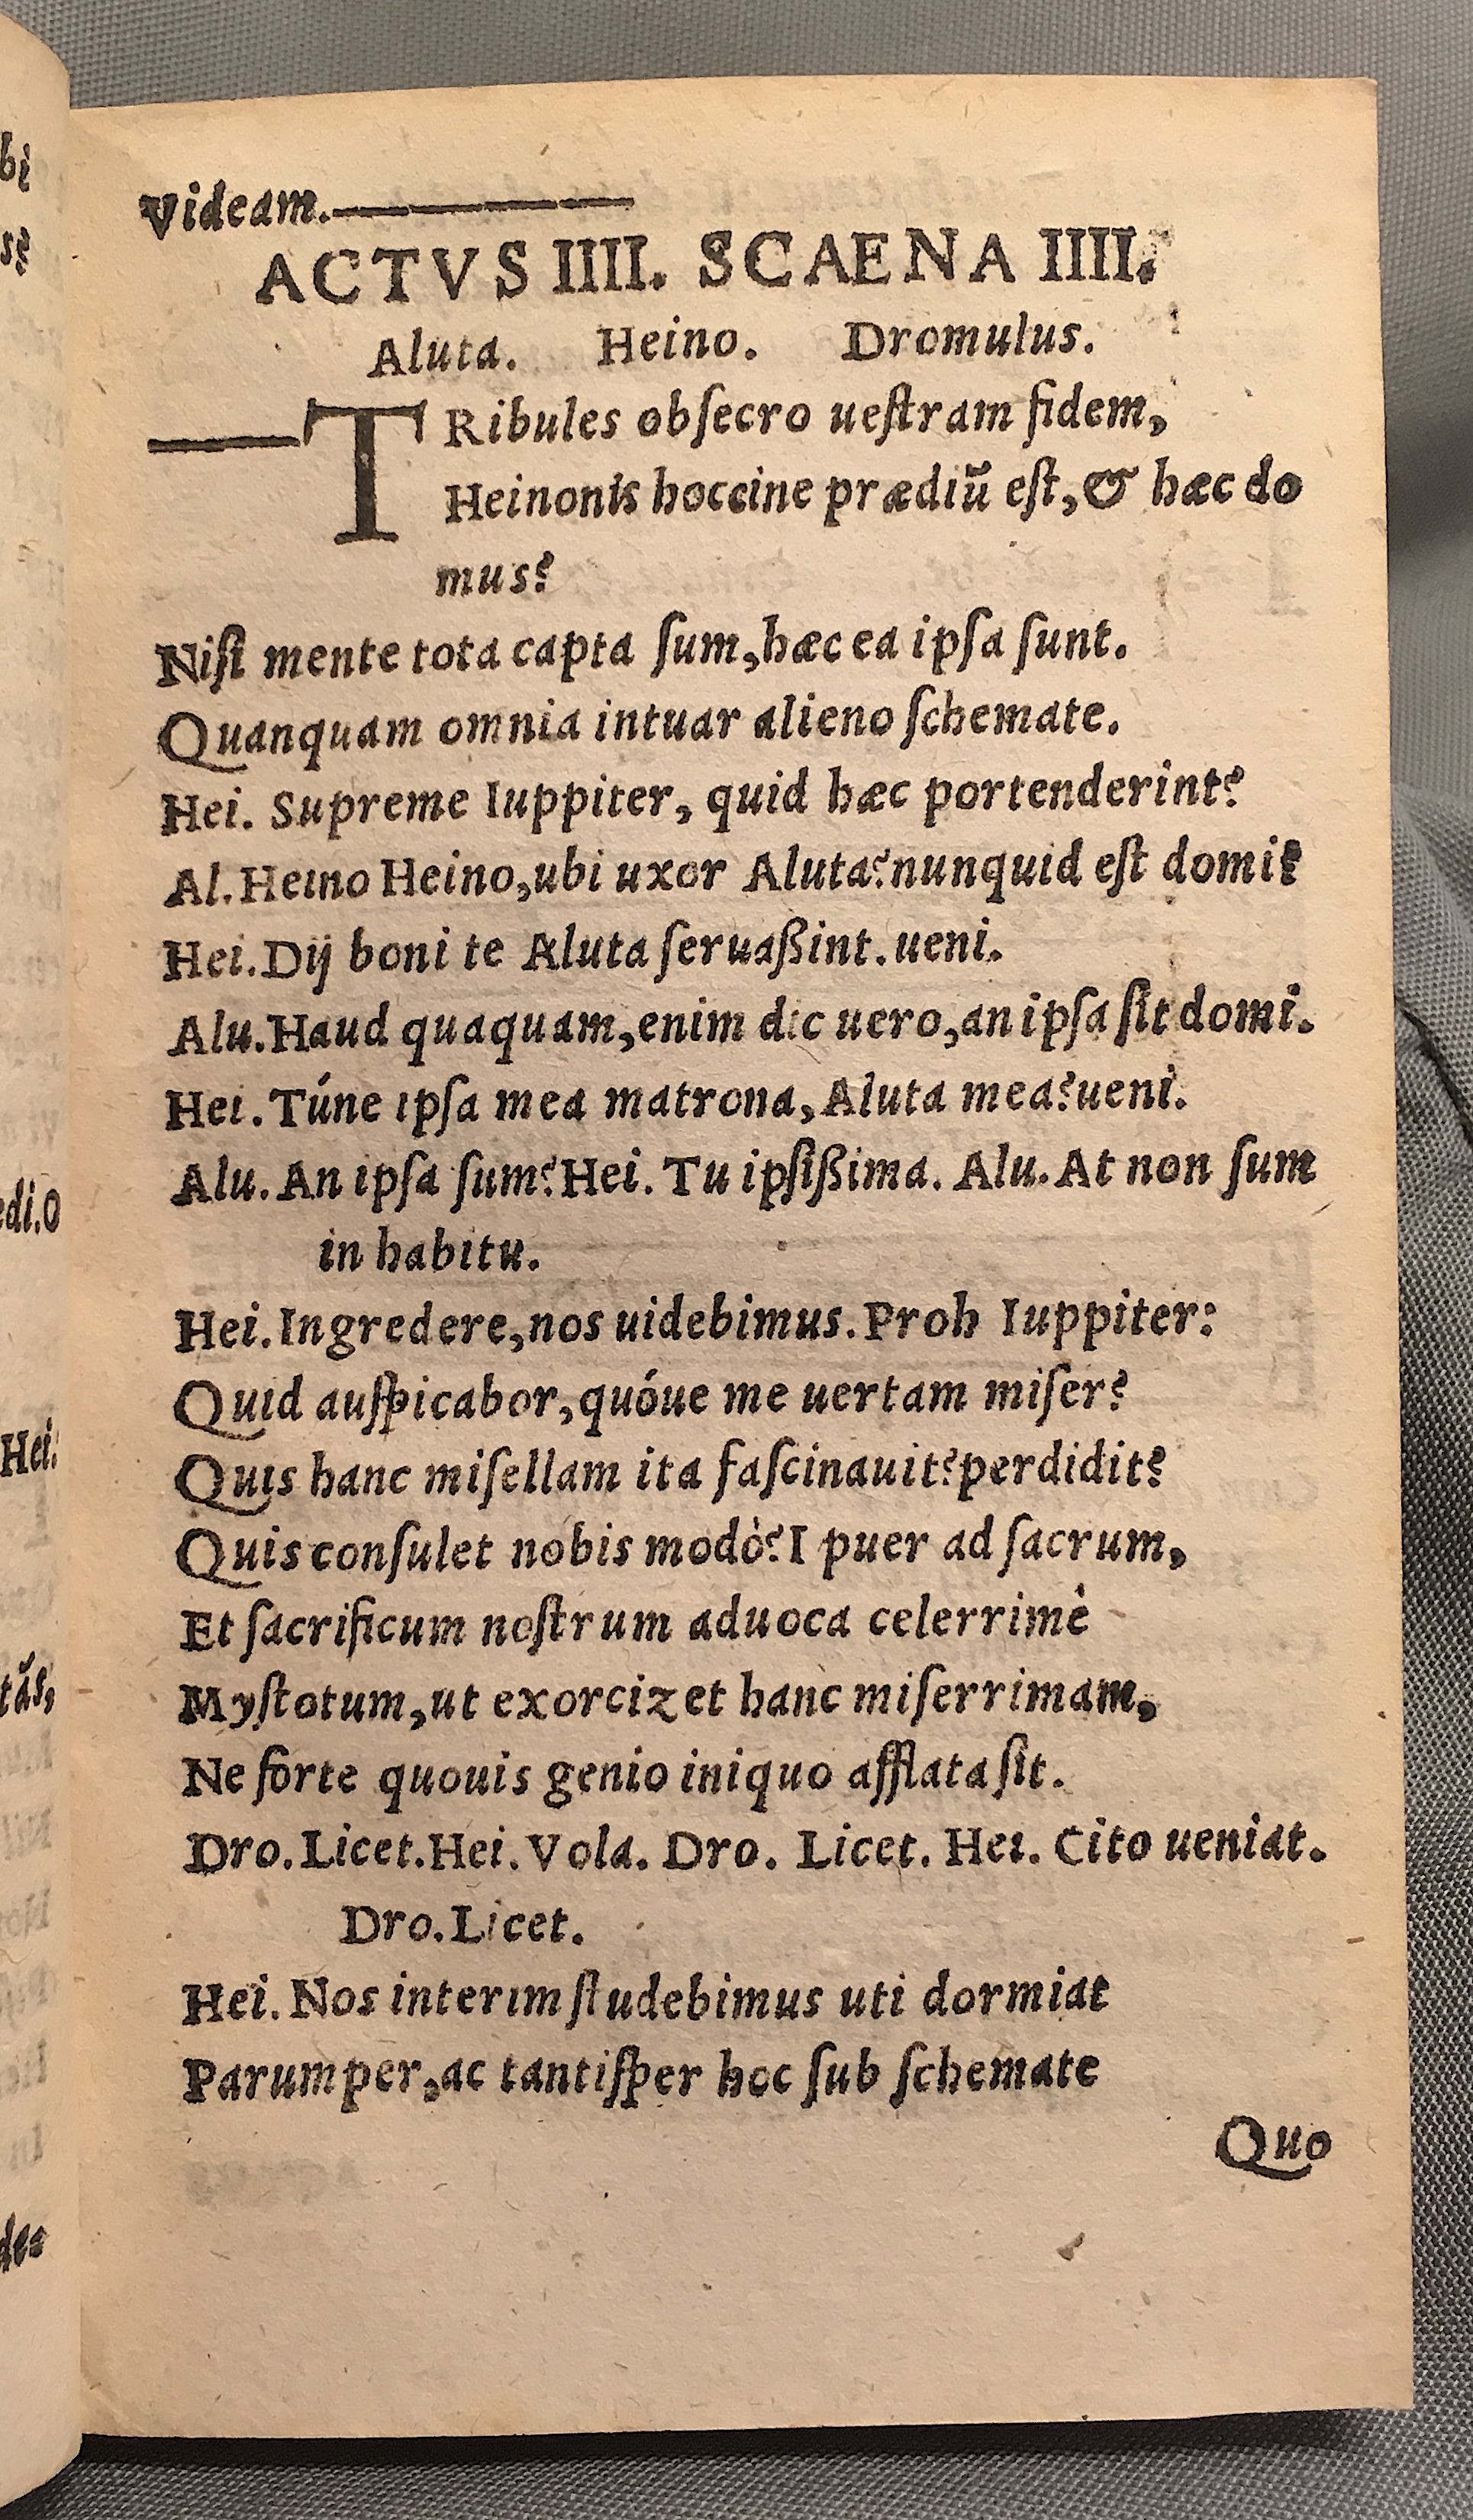 Videam.————
ACTVS IIII. SCAENA IIII.
Aluta. Heino. Dromulus.
—TRibules obſecro ueſtram fidem,
Heinonis hoccine prædiũ eſt, & hæc do
mus?
Niſi mente tota capta ſum, hæc ea ipſa ſunt.
Quanquam omnia intuar alieno ſchemate.
Hei. Supreme Iuppiter, quid hæc portenderint?
Al. Heino Heino, ubi uxor Aluta? nunquid eſt domi?
Hei. Dij boni te Aluta ſeruaßint. ueni.
Alu. Haud quaquam, enim dic uero, an ipſa ſit domi.
Hei. Túne ipſa mea matrona, Aluta mea? ueni.
Alu. An ipſa ſum? Hei. Tu ipſißima. Alu. At non ſum
in habitu.
Hei. Ingredere, nos uidebimus. Proh Iuppiter:
Quid auſpicabor, quóue me uertam miſer?
Quis hanc miſellam ita faſcinauit? perdidit?
Quis conſulet nobis modò? I puer ad ſacrum,
Et ſacrificum noſtrum aduoca celerrimè
Myſtotum, ut exorcizet hanc miſerrimam,
Ne forte quouis genio iniquo afflata ſit.
Dro. Licet. Hei. Vola. Dro. Licet. Hei. Cito ueniat.
Dro. Licet.
Hei. Nos interim ſtudebimus uti dormiat
Parumper, ac tantiſper hoc ſub ſchemate
Quo